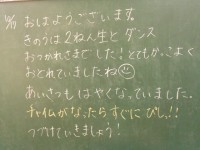 おはようございます。
きのうは2ねん生とダンス
おつかれさまでした!とてもかっこよく
おどれていましたね
あいさつもはやくなっていました。
チャイムがなったらすぐにぴしっ!!
つづけていきましょう!